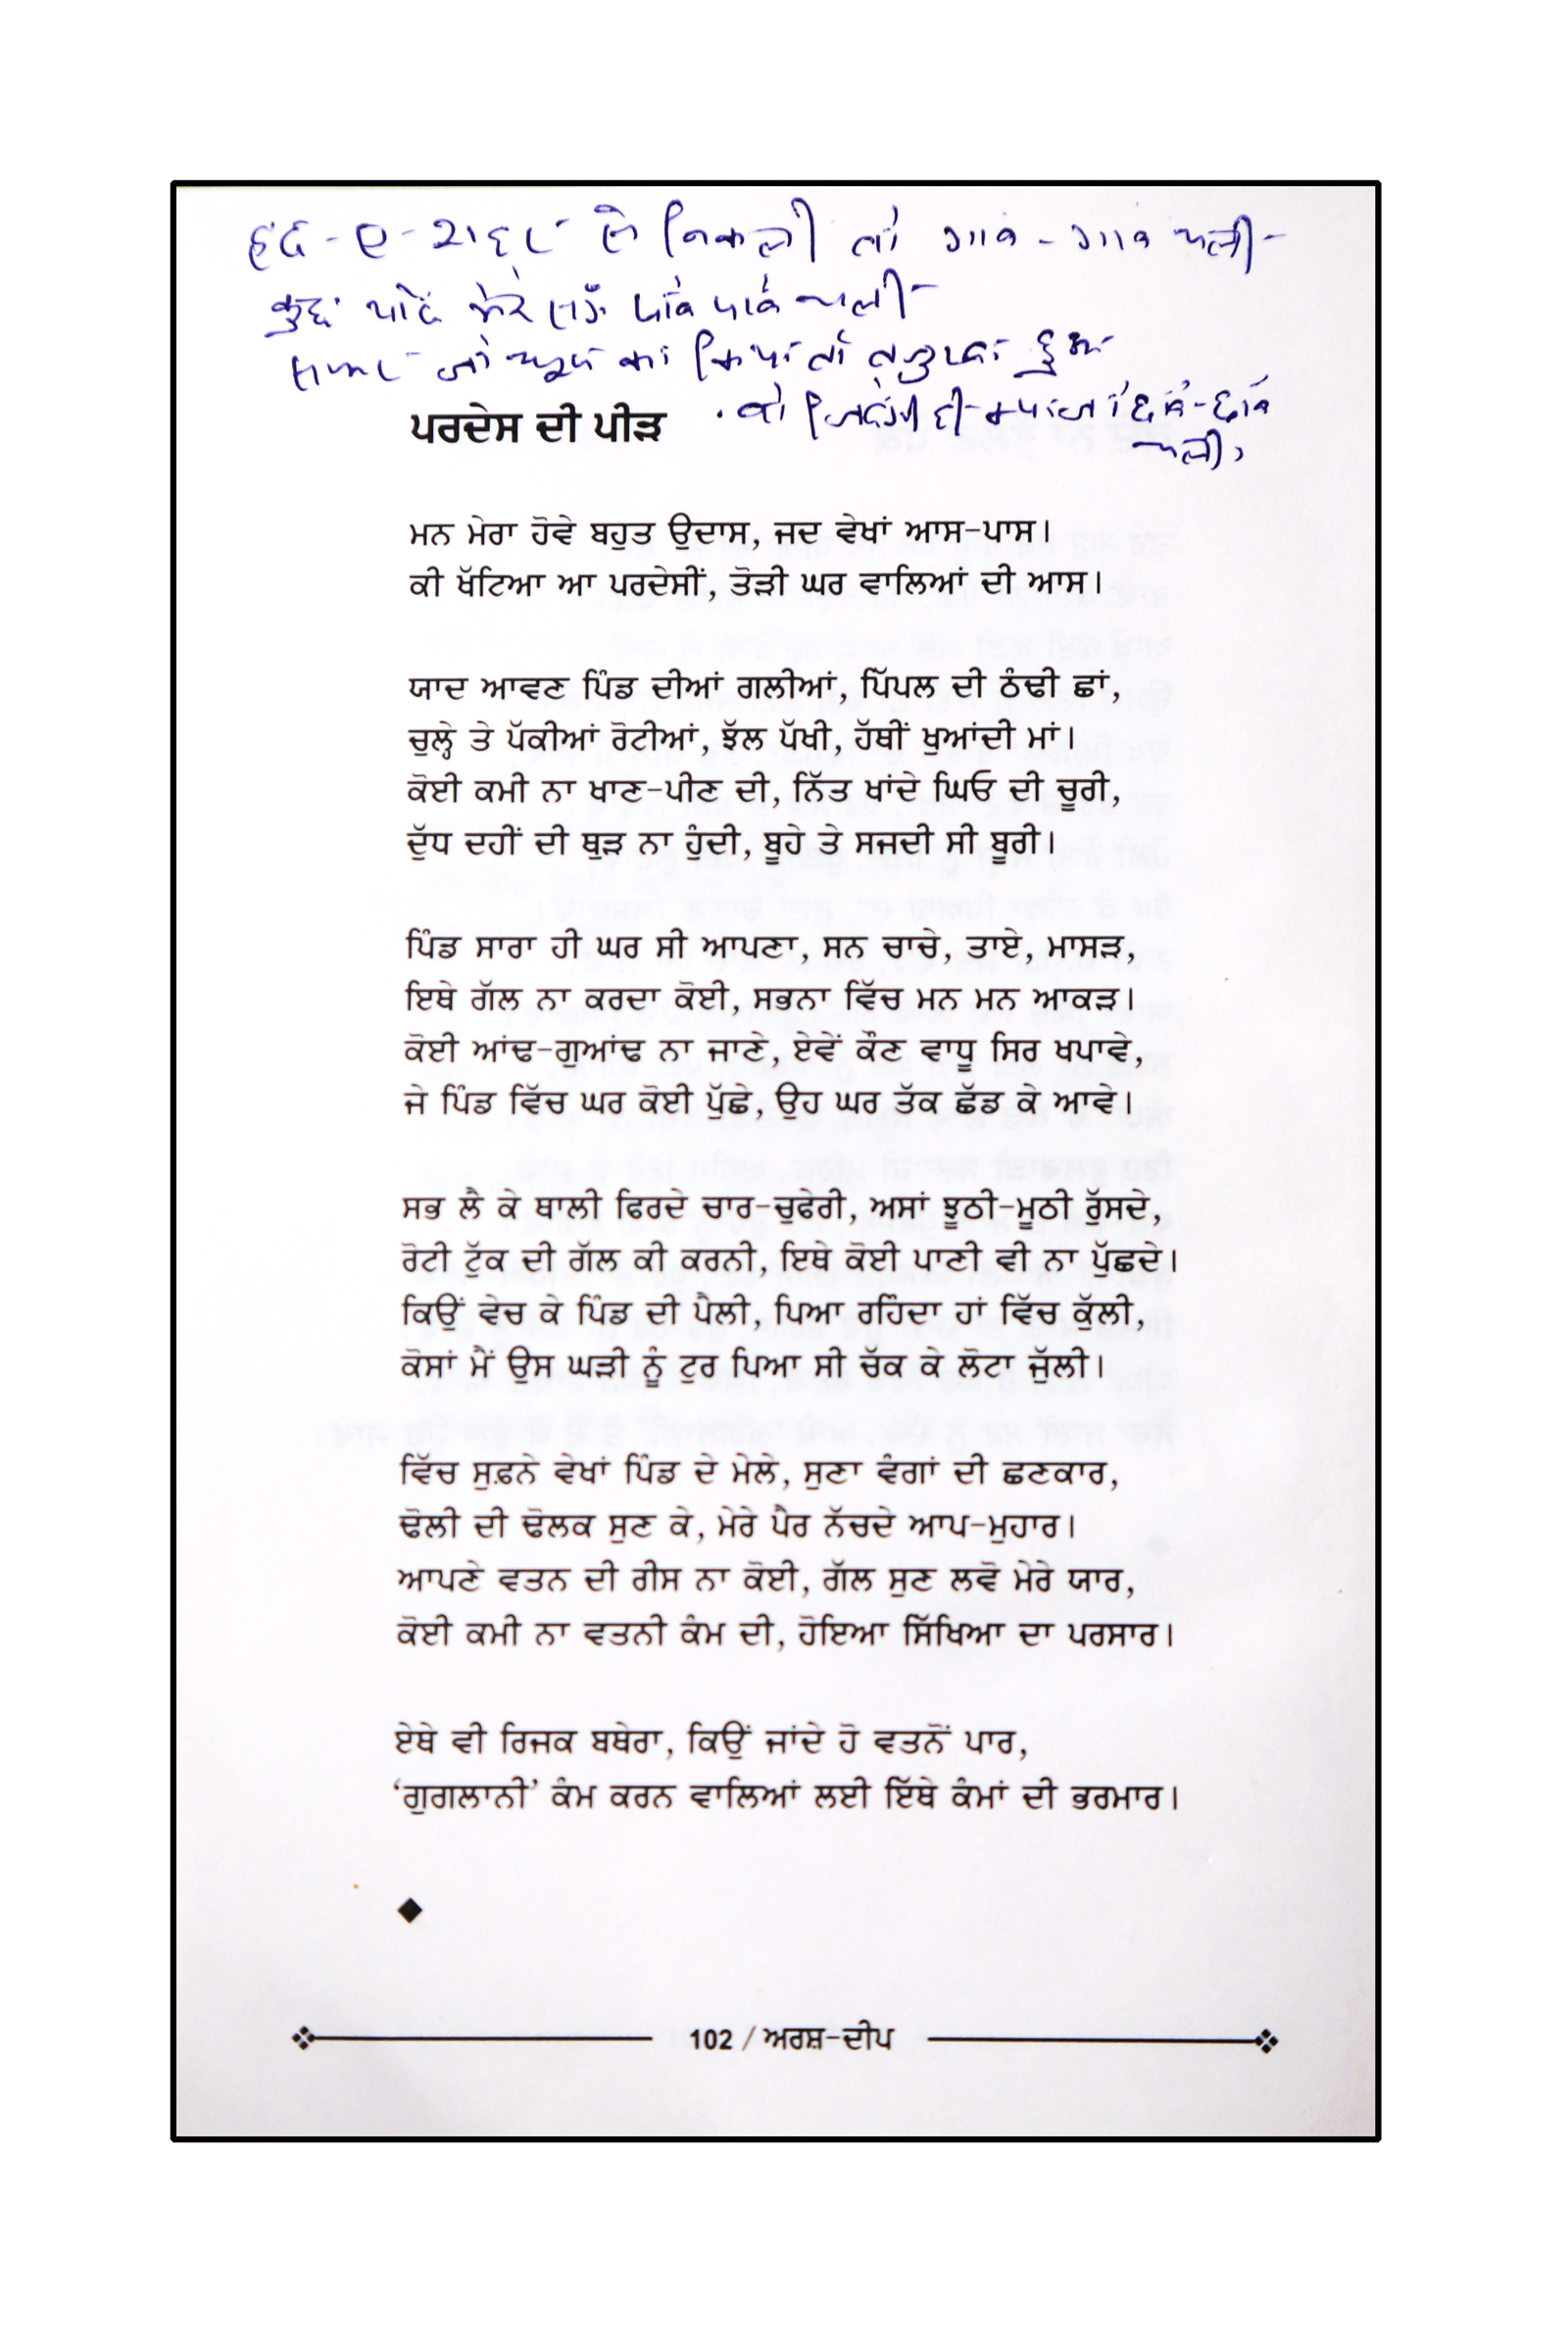 ਹਦ-ਏ-ਸ਼ਹਰ ਸੇ ਨਿਕਲੀ ਤੋ ਗਾਵ - ਗਾਵ ਚਲੀ-
ਕੁਛ ਯਾਦੇਂ ਮੇਰੇ ਸੰਗ ਪਾਂਵ ਪਾਂਵ ਚਲੀ-
ਸਫਰ ਜੋ ਧੂਪ ਕਾ ਕਿਯਾ ਤੋ ਤਜੁਰਬਾ ਹੁਆ
ਵੋ ਜਿੰਦਗੀ ਹੀ ਕਯਾ ਜੋ ਛਾਂਵ-ਛਾਂਵ
ਚਲੀ,
ਪਰਦੇਸ ਦੀ ਪੀੜ
ਮਨ ਮੇਰਾ ਹੋਵੇ ਬਹੁਤ ਉਦਾਸ, ਜਦ ਵੇਖਾਂ ਆਸ-ਪਾਸ।
ਕੀ ਖੱਟਿਆ ਆ ਪਰਦੇਸੀਂ, ਤੋੜੀ ਘਰ ਵਾਲਿਆਂ ਦੀ ਆਸ।
ਯਾਦ ਆਵਣ ਪਿੰਡ ਦੀਆਂ ਗਲੀਆਂ, ਪਿੱਪਲ ਦੀ ਠੰਢੀ ਛਾਂ,
ਚੁਲ੍ਹੇ ਤੇ ਪੱਕੀਆਂ ਰੋਟੀਆਂ, ਝੱਲ ਪੱਖੀ, ਹੱਥੀਂ ਖੁਆਂਦੀ ਮਾਂ।
ਕੋਈ ਕਮੀ ਨਾ ਖਾਣ-ਪੀਣ ਦੀ, ਨਿੱਤ ਖਾਂਦੇ ਘਿਓ ਦੀ ਚੂਰੀ,
ਦੁੱਧ ਦਹੀਂ ਦੀ ਥੁੜ ਨਾ ਹੁੰਦੀ, ਬੂਹੇ ਤੇ ਸਜਦੀ ਸੀ ਬੂਰੀ।
ਪਿੰਡ ਸਾਰਾ ਹੀ ਘਰ ਸੀ ਆਪਣਾ, ਸਨ ਚਾਚੇ, ਤਾਏ, ਮਾਸੜ,
ਇਥੇ ਗੱਲ ਨਾ ਕਰਦਾ ਕੋਈ, ਸਭਨਾ ਵਿੱਚ ਮਨ ਮਨ ਆਕੜ।
ਕੋਈ ਆਂਢ-ਗੁਆਂਢ ਨਾ ਜਾਣੇ, ਏਵੇਂ ਕੌਣ ਵਾਧੂ ਸਿਰ ਖਪਾਵੇ,
ਜੇ ਪਿੰਡ ਵਿੱਚ ਘਰ ਕੋਈ ਪੁੱਛੇ, ਉਹ ਘਰ ਤੱਕ ਛੱਡ ਕੇ ਆਵੇ।
ਸਭ ਲੈ ਕੇ ਥਾਲੀ ਫਿਰਦੇ ਚਾਰ-ਚੁਫੇਰੀ, ਅਸਾਂ ਝੂਠੀ-ਮੂਠੀ ਰੁੱਸਦੇ,
ਰੋਟੀ ਟੁੱਕ ਦੀ ਗੱਲ ਕੀ ਕਰਨੀ, ਇਥੇ ਕੋਈ ਪਾਣੀ ਵੀ ਨਾ ਪੁੱਛਦੇ।
ਕਿਉਂ ਵੇਚ ਕੇ ਪਿੰਡ ਦੀ ਪੈਲੀ, ਪਿਆ ਰਹਿੰਦਾ ਹਾਂ ਵਿੱਚ ਕੁੱਲੀ,
ਕੋਸਾਂ ਮੈਂ ਉਸ ਘੜੀ ਨੂੰ ਟੁਰ ਪਿਆ ਸੀ ਚੱਕ ਕੇ ਲੋਟਾ ਜੁੱਲੀ।
ਵਿੱਚ ਸੁਫ਼ਨੇ ਵੇਖਾਂ ਪਿੰਡ ਦੇ ਮੇਲੇ, ਸੁਣਾ ਵੰਗਾਂ ਦੀ ਛਣਕਾਰ,
ਢੋਲੀ ਦੀ ਢੋਲਕ ਸੁਣ ਕੇ, ਮੇਰੇ ਪੈਰ ਨੱਚਦੇ ਆਪ-ਮੁਹਾਰ।
ਆਪਣੇ ਵਤਨ ਦੀ ਰੀਸ ਨਾ ਕੋਈ, ਗੱਲ ਸੁਣ ਲਵੋ ਮੇਰੇ ਯਾਰ,
ਕੋਈ ਕਮੀ ਨਾ ਵਤਨੀ ਕੰਮ ਦੀ, ਹੋਇਆ ਸਿੱਖਿਆ ਦਾ ਪਰਸਾਰ।
ਏਥੇ ਵੀ ਰਿਜਕ ਬਥੇਰਾ, ਕਿਉਂ ਜਾਂਦੇ ਹੋ ਵਤਨੋਂ ਪਾਰ,
‘ਗੁਗਲਾਨੀ’ ਕੰਮ ਕਰਨ ਵਾਲਿਆਂ ਲਈ ਇੱਥੇ ਕੰਮਾਂ ਦੀ ਭਰਮਾਰ।
102 / ਅਰਸ਼-ਦੀਪ